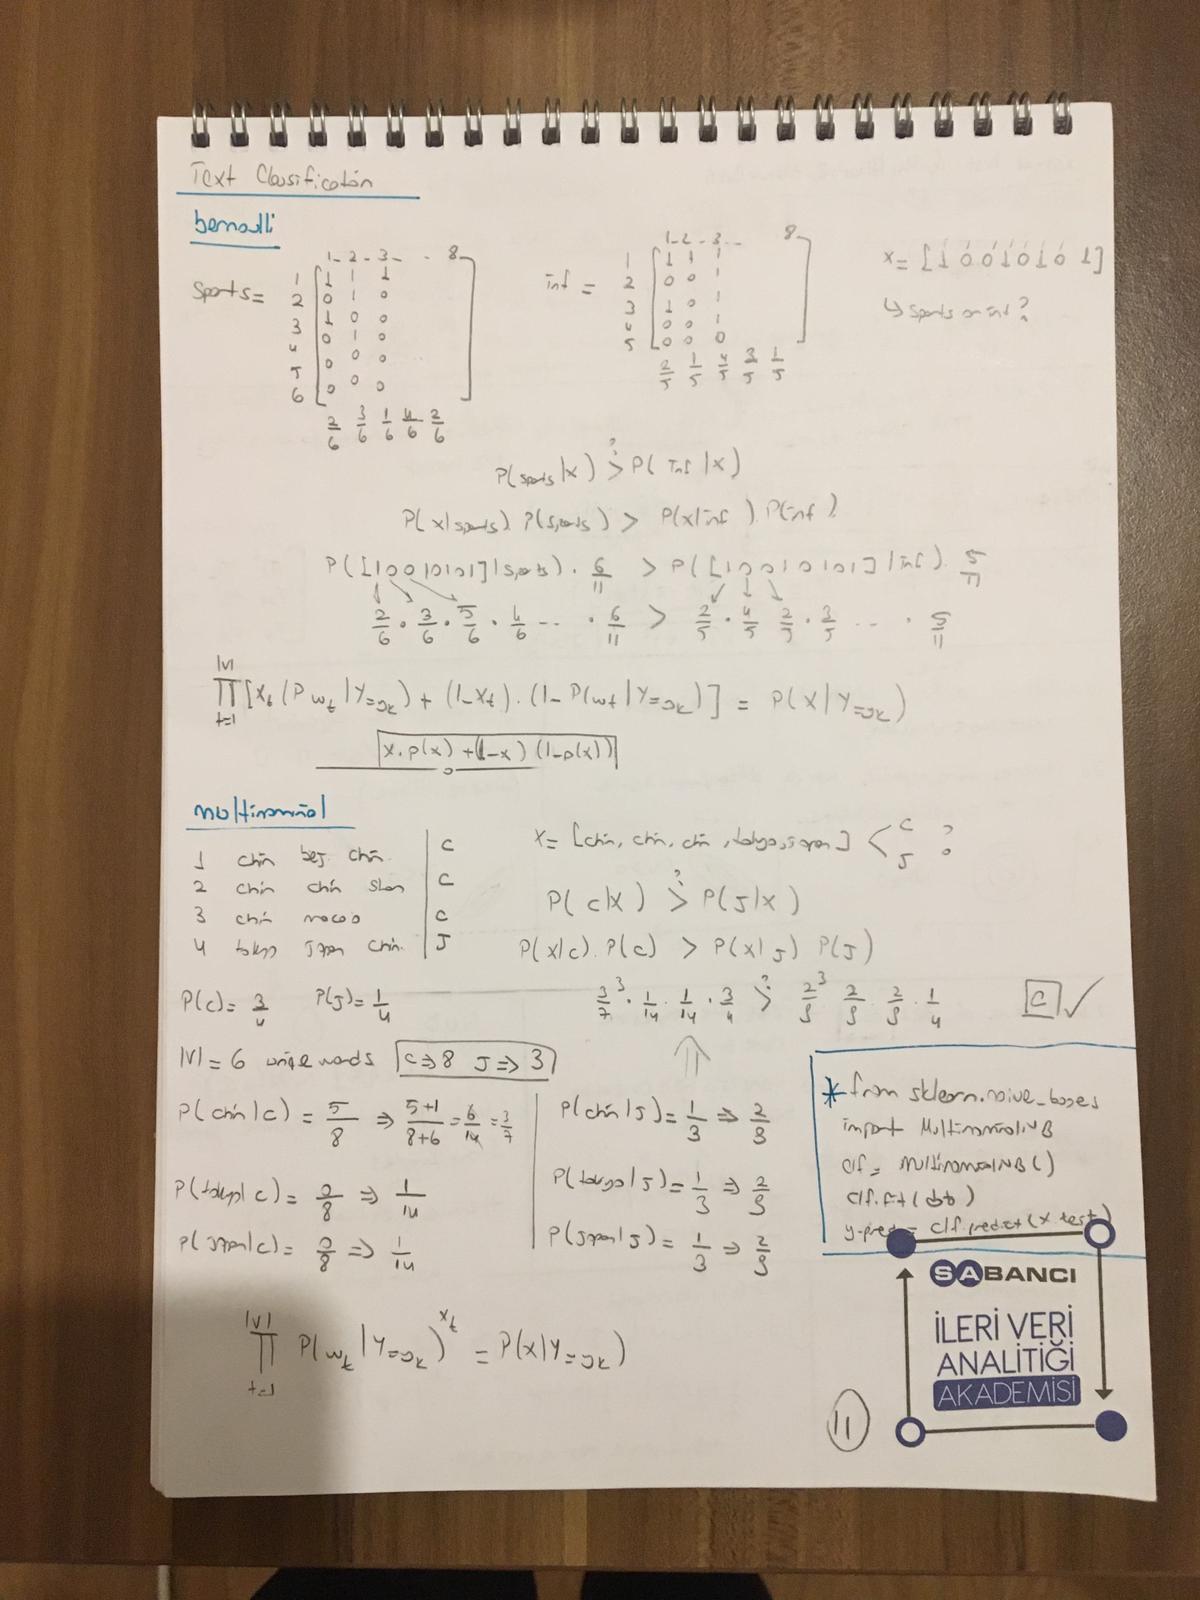 Text Classification
bernoulli
1 - 2 - 3 - . . 8
sports =
1 1 1 1
2 0 1 0
3 1 0 0
4 0 1 0
5 0 0 0
6 0 0 0
2/6 3/6 1/6 4/6 2/6
1 - 2 - 3 - .. 8
inf =
1 1 1 1
2 0 0 1
3 1 0 1
4 0 0 1
5 0 0 0
2/5 1/5 4/5 3/5 1/5
x = [1 0 0 1 0 1 0 1]
↳ sports or inf?
P(sports|x) >? P(inf|x)
P(x|sports) P(sports) > P(x|inf) . P(inf)
P([10010101]|sports) . 6/11 > P([10010101]|inf) . 5/11
2/6 . 3/6 . 5/6 . 4/6 ... . 6/11 > 2/5 . 4/5 2/5 . 3/5 ... . 5/11
|V| ∏ t=1 [x_t (P w_t | Y=y_k) + (1-x_t) . (1-P(w_t | Y=y_k)] = P(X | Y=y_k)
x.p(x) + (1-x) (1-p(x))
multinomial
1 chin bej chin. | C
2 chin chin shan | C
3 chin macao | C
4 tokyo japan chin. | J
x = [chin, chin, chin, tokyo, japan] < C J ?
P(c|x) >? P(J|x)
P(x|c) . P(c) > P(x|J) P(J)
P(c) = 3/4 P(J) = 1/4
3/7^3 . 1/14 . 1/14 . 3/4 >? 2/9^3 2/9 . 2/9 . 1/4
C ✓
|V| = 6 unique words C ⇒ 8 J ⇒ 3
P(chin|c) = 5/8 ⇒ 5+1/8+6 = 6/14 = 3/7
P(tokyo|c) = 0/8 ⇒ 1/14
P(japan|c) = 0/8 ⇒ 1/14
P(chin|J) = 1/3 ⇒ 2/9
P(tokyo|J) = 1/3 ⇒ 2/9
P(japan|J) = 1/3 ⇒ 2/9
* from sklearn.naive_bayes
import MultinomialNB
clf = MultinomialNB()
clf.fit(
y-pred = clf.predict(x.test)
|V| ∏ t=1 P(w_t | Y=y_k)^x_t = P(X | Y=y_k)
11
SABANCI
İLERİ VERİ
ANALİTİĞİ
AKADEMİSİ